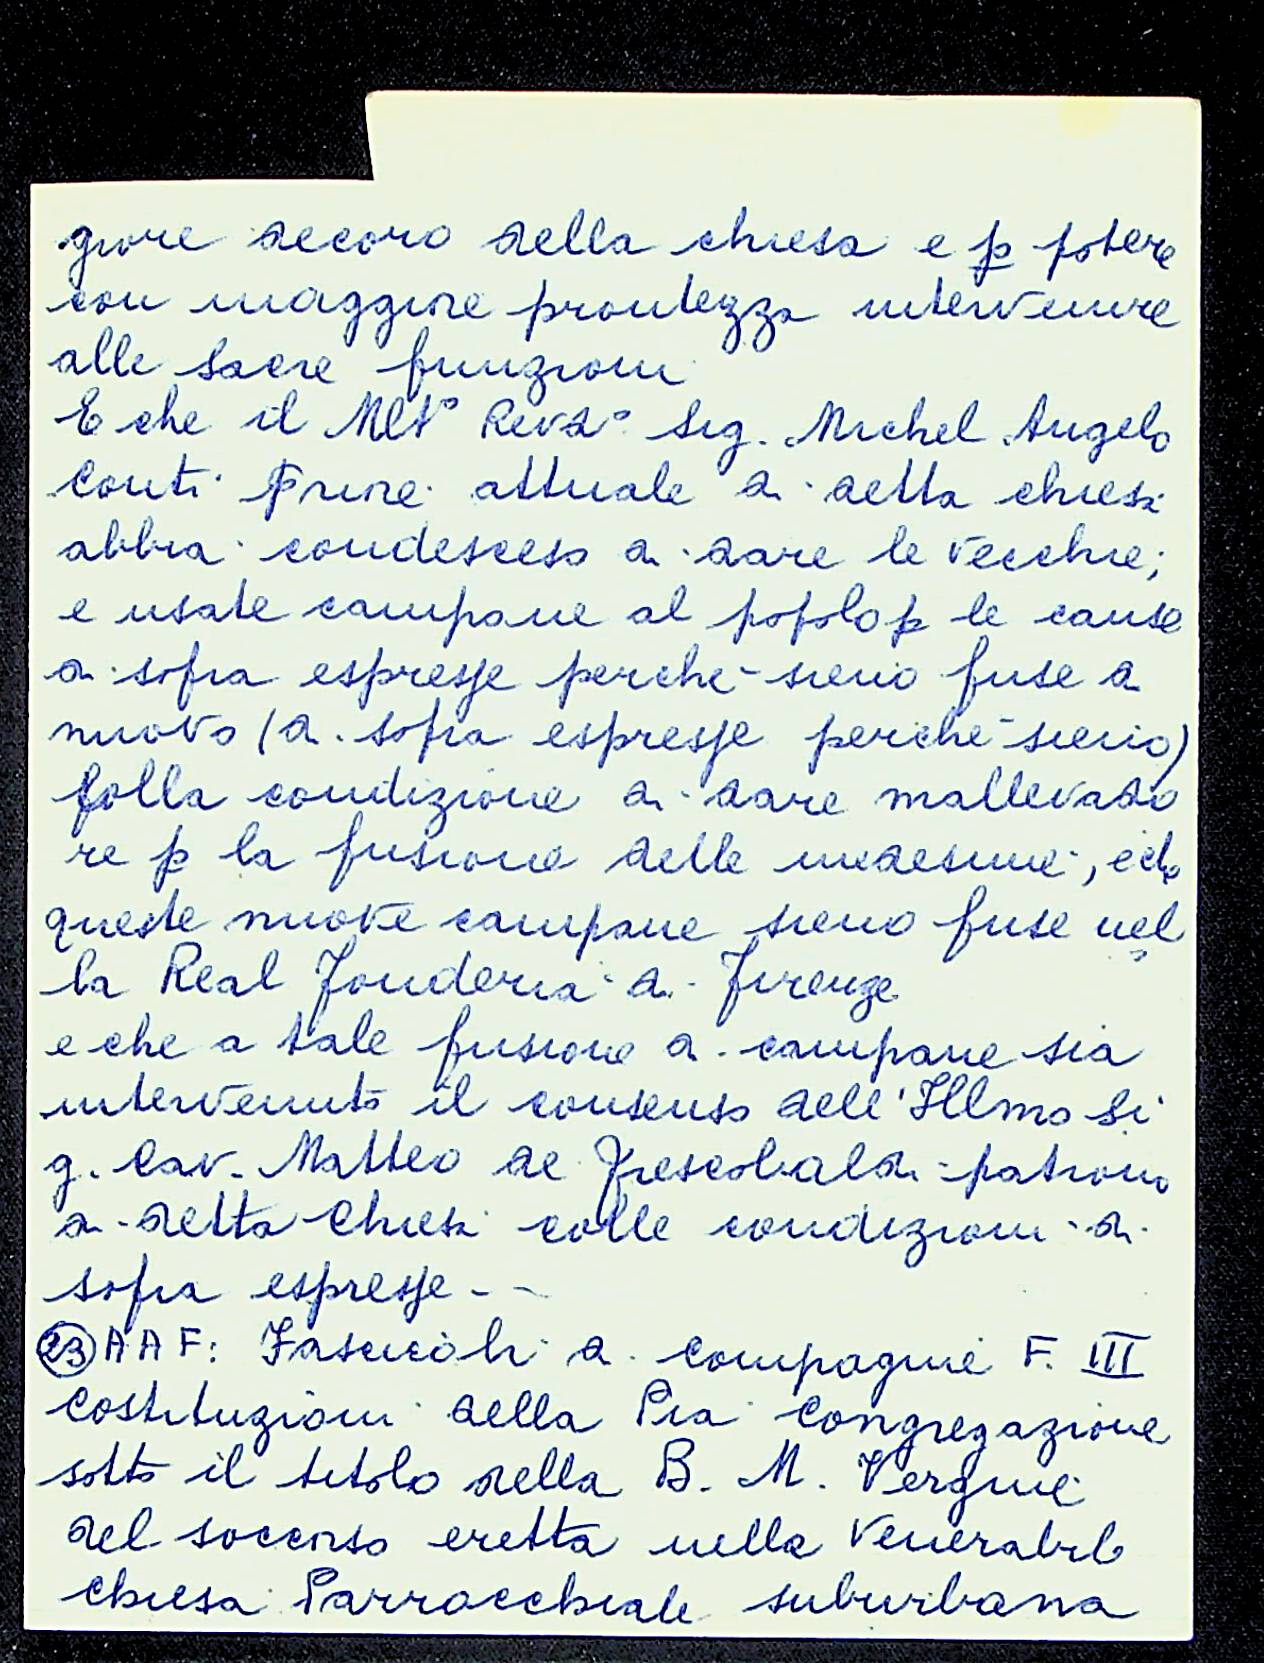 giore decoro della chiesa e p potere
con maggiore prontezza intervenire
alle sacre funzioni
E che il Mlt° Revd° Sig. Michel Angelo
Conti Priore attuale di detta chiesa
abbia condesceso di dare le vecchie;
e usate campane al popolo p le cause
di sopra espresse perche sieno fuse di
nuovo (di sopra espresse perché sieno)
colla condizione di dare mallevado
re p la fusione delle medesime, e che
queste nuove campane sieno fuse nel
la Real Fonderia di Firenze
e che a tale fusione di campane sia
intervenuto il consenso dell'Illmo Si
g. Cav. Matteo de Frescobaldi patrono
di detta Chiesa colle condizioni di
sopra espresse - -
23 A A F: Fascicoli di compagnie F. III
Costituzioni della Pia Congregazione
sotto il titolo della B. M. Vergine
del soccorso eretta nella Venerabil
chiesa Parrocchiale suburbana